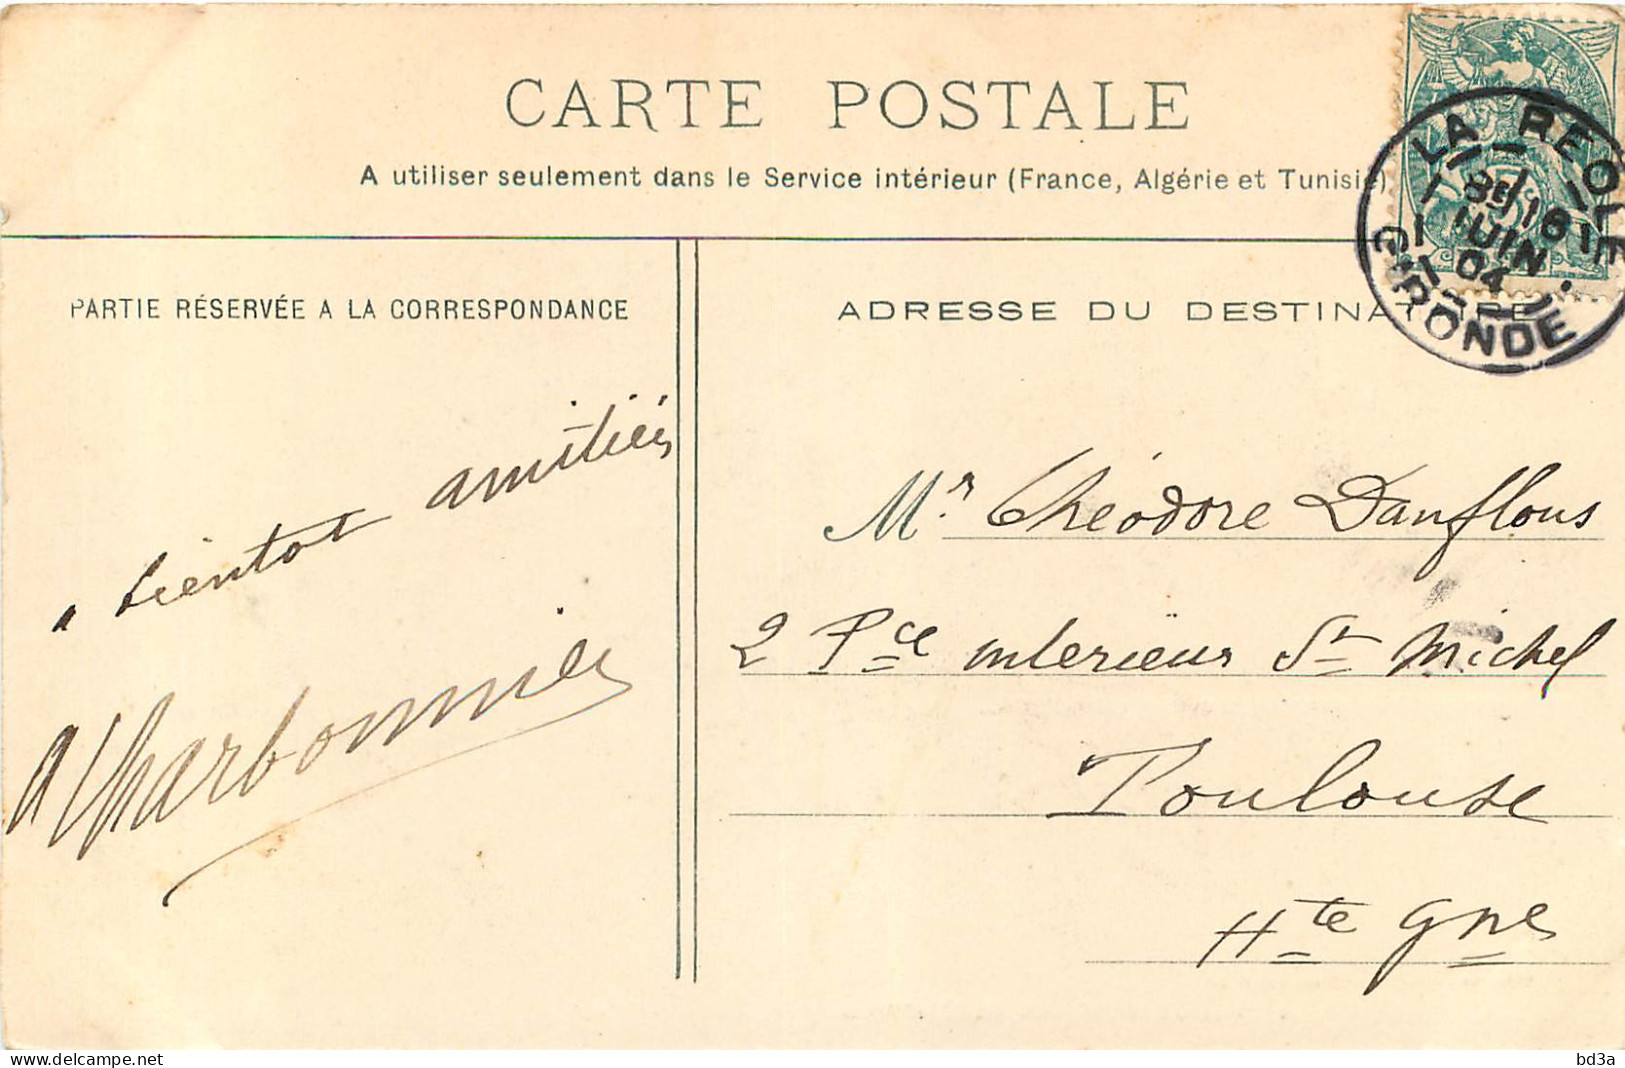 CARTE POSTALE
A utiliser seulement dans le Service intérieur (France, Algérie et Tunisie)
LA REOLE
16
JUIN
04
GIRONDE
PARTIE RÉSERVÉE A LA CORRESPONDANCE
ADRESSE DU DESTINATAIRE
a bientot amitiés
A Charbonnier
Mr. Théodore Danflous
2 Pce interieur St Michel
Toulouse
Hte Gne
delcampe.net
bd3a